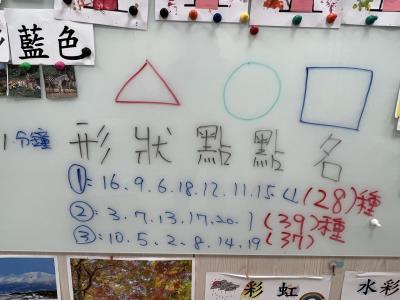 藍色
形狀點點名
1分鐘
①:16.9.6.18.12.11.15.4(28)種
②:3.7.13.17.20.1(39)種
③:10.5.2.8.14.19(37)
彩虹
水彩